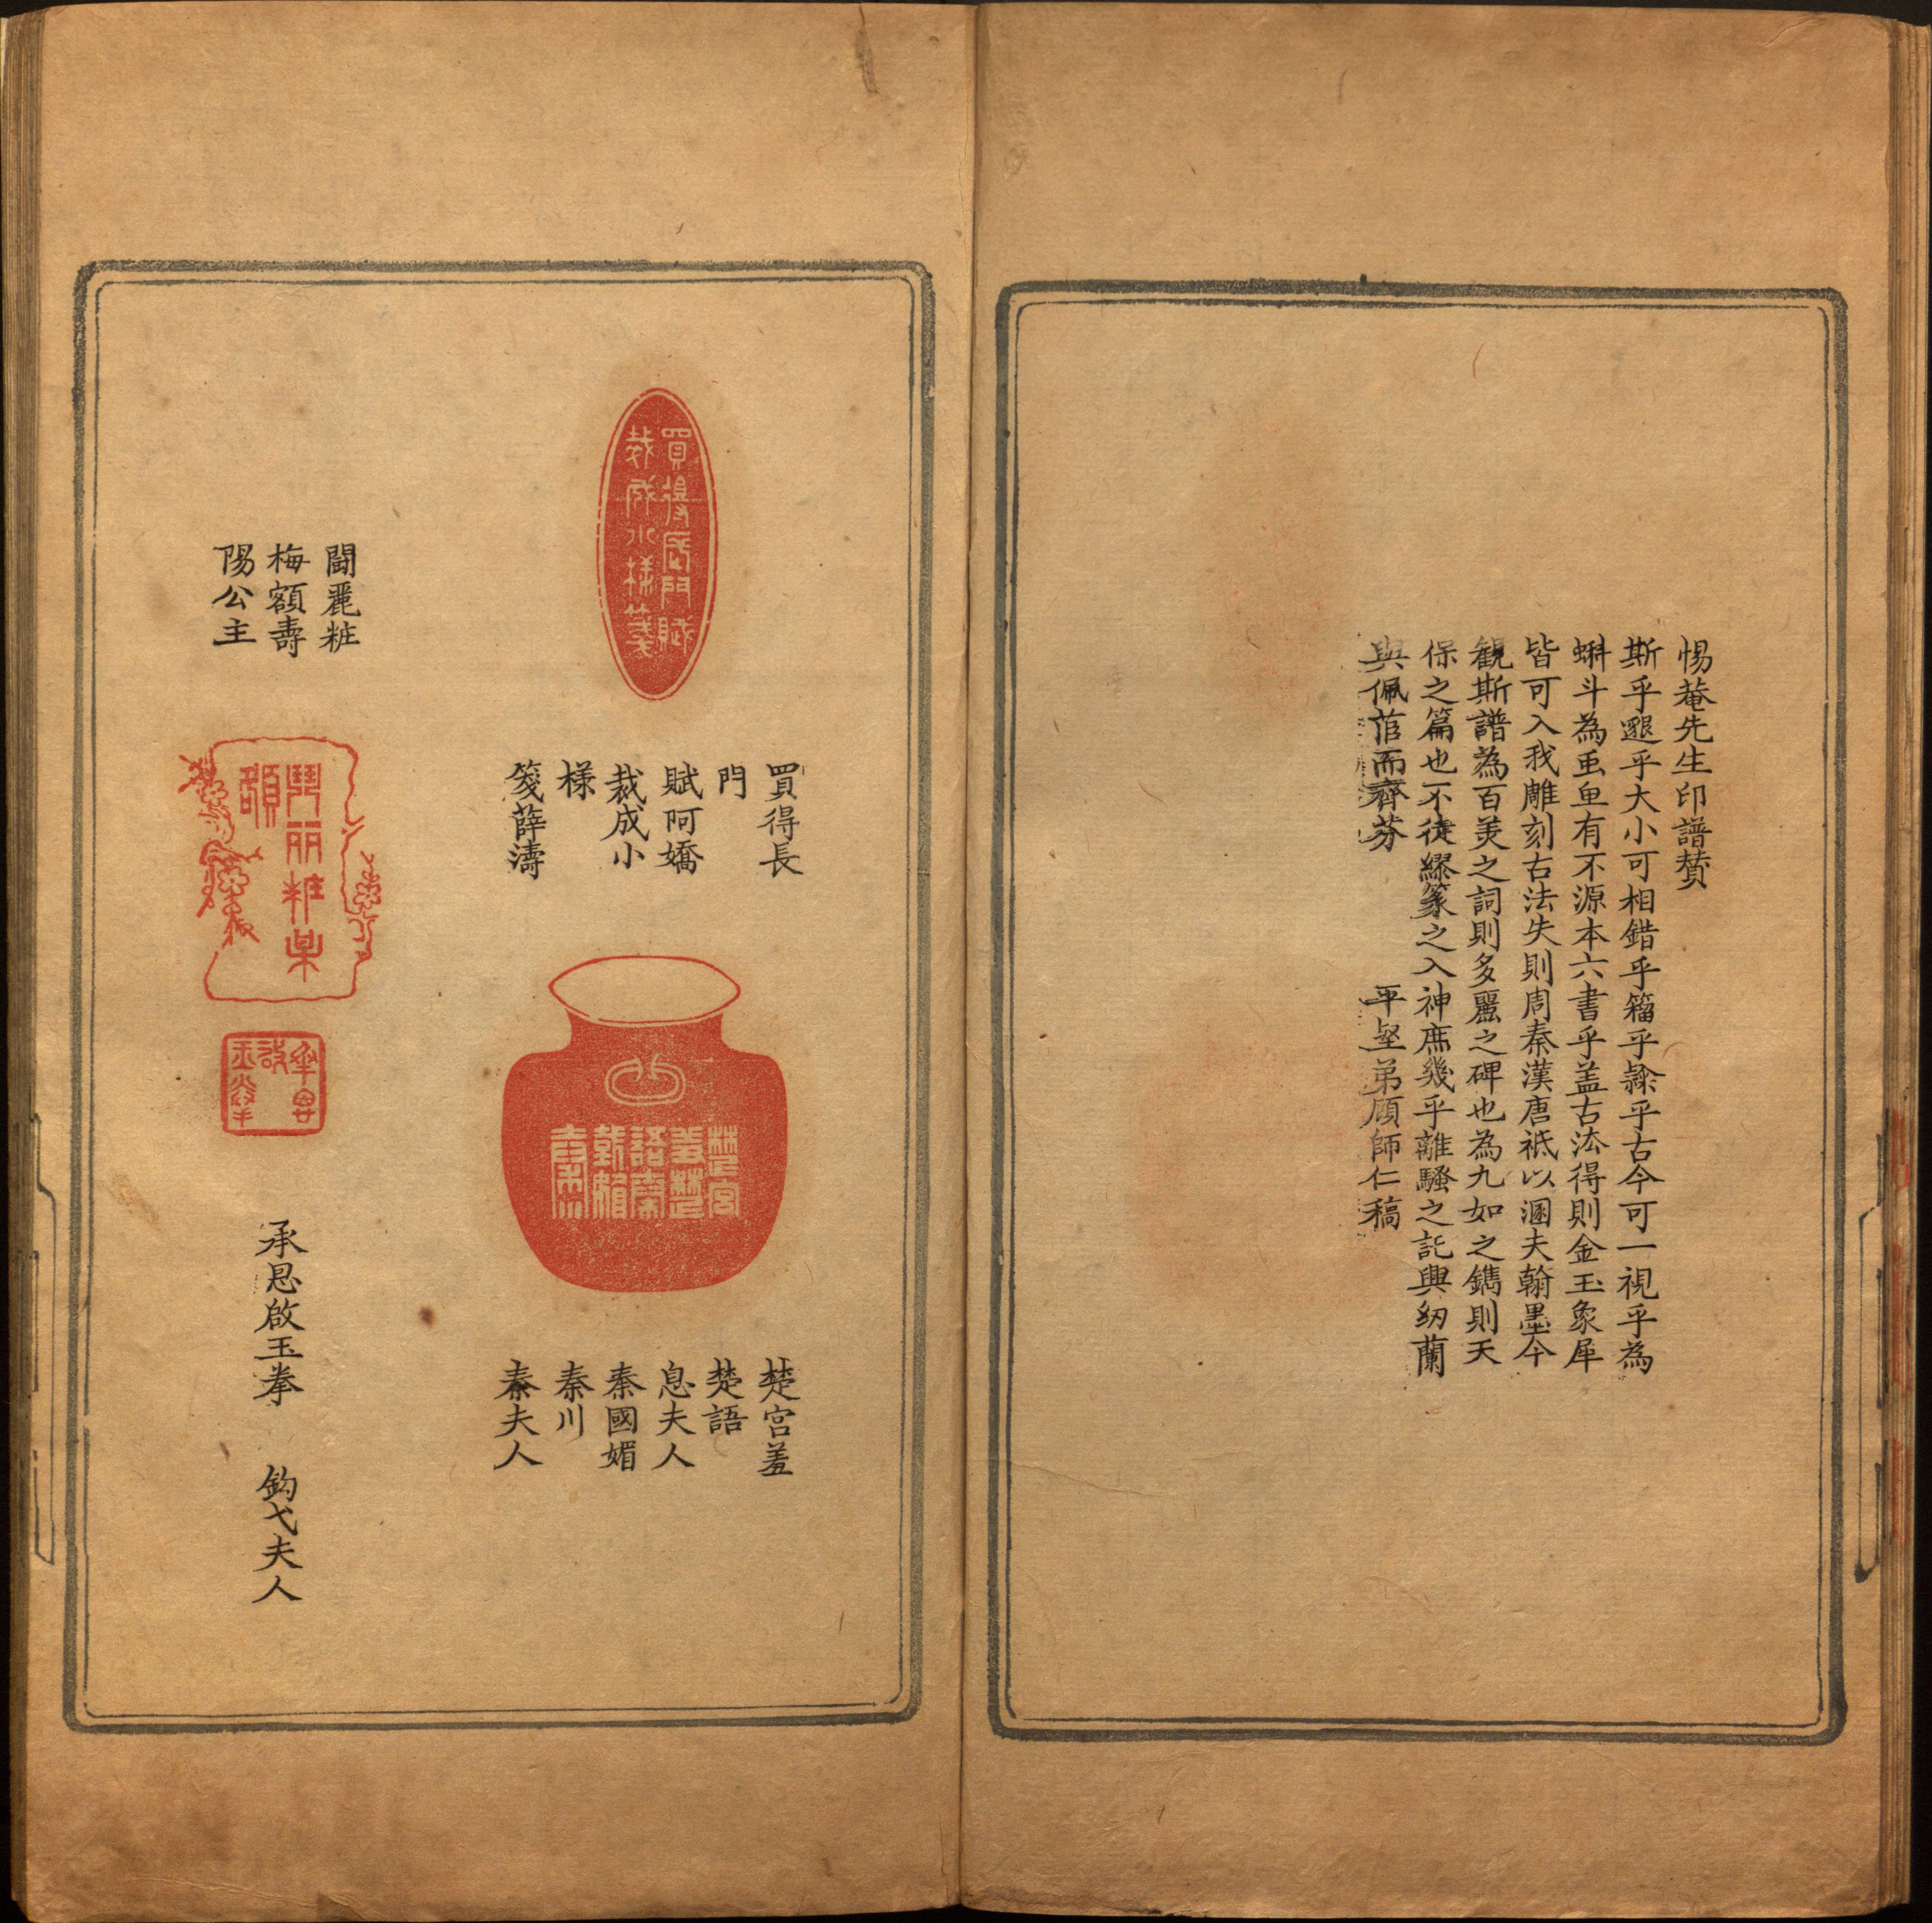 惕菴先生印譜贊
斯乎邈乎大小可相錯乎籀乎隸乎古今可一視乎為
蝌斗為虫䖵有不源本六書乎盖古法得則金玉象犀
皆可入我雕刻古法失則周秦漢唐祗以溷夫翰墨今
観斯譜為百美之詞則多麗之碑也為九如之鐫則天
保之篇也不徒繆篆之入神庶幾乎離騷之託興紉蘭
與佩茝而齊芬
平埜弟顧師仁稿
買得長門賦
裁成小様箋
買得長
門
賦阿嬌
裁成小
様
箋薛濤
楚宮
羞楚
語秦
國媚
秦川
楚宮羞
楚語
息夫人
秦國媚
秦川
秦夫人
鬥丽粧某
額
鬪麗粧
梅額壽
陽公主
承恩
啟
玉拳
承恩啟玉拳 鈎弋夫人